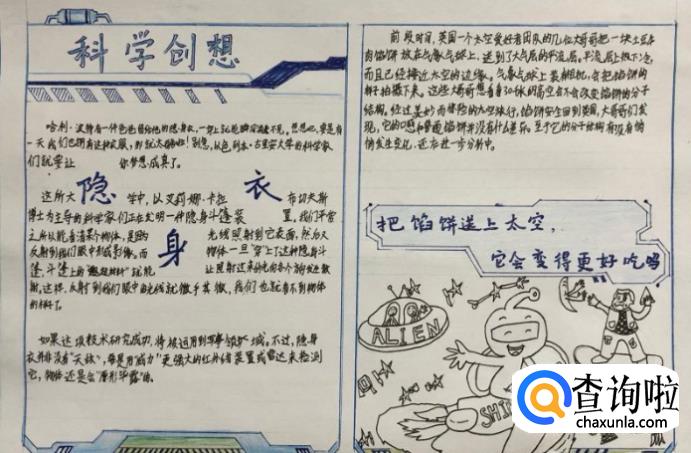 科学创想
哈利·波特有一件爸爸留给他的隐身衣，一穿上就能瞬间隐去不见。想想吧，要是有
一天我们也拥有这种衣服，那就太酷啦！别急，以色列本·古里安大学的科学家
们就要让你梦想成真了。
隐
身
衣
这所大学中，以艾莉娜·卡拉布切夫斯
博士为主导的科学家们正在发明一种隐身斗篷装置，我们平常
之所以能看清某个物体，是因为光线照射到它表面，然后又
反射到我们眼中形成影像。而物体一旦穿上了这种隐身斗
篷，斗篷上的"超材料"就能让照射过来的光向各个方向
散射，这样，反射到我们眼中的光线就微乎其微，我们也就看不到物体
的样子了。
如果这项技术研究成功，将被运用到军事领域。不过，隐身
衣并非没有"天敌"，每是用威力更强大的红外线装置或雷达来检测
它，物体还是会"原形毕露"的。
前段时间，英国一个太空爱好者团队的几位大哥哥把一块土豆牛
肉馅饼放在气象气球上，送到了大气层的平流层。平流层上极下冷，
而且已经接近太空的边缘。气象气球上装相机，会把馅饼的
样子拍摄下来。这些大哥哥想看看30千米的高空会不会改变馅饼的分子
结构。经过美妙而冒险的九空旅行，馅饼安全回到英国，大哥哥们发
现，它的口感和普通馅饼并没什么差异。至于它的分子结构有没有悄
悄发生变化，还在进一步分析中。
把馅饼送上太空，
它会变得更好吃吗
ALIEN
SHI
查询啦
chaxunla.com